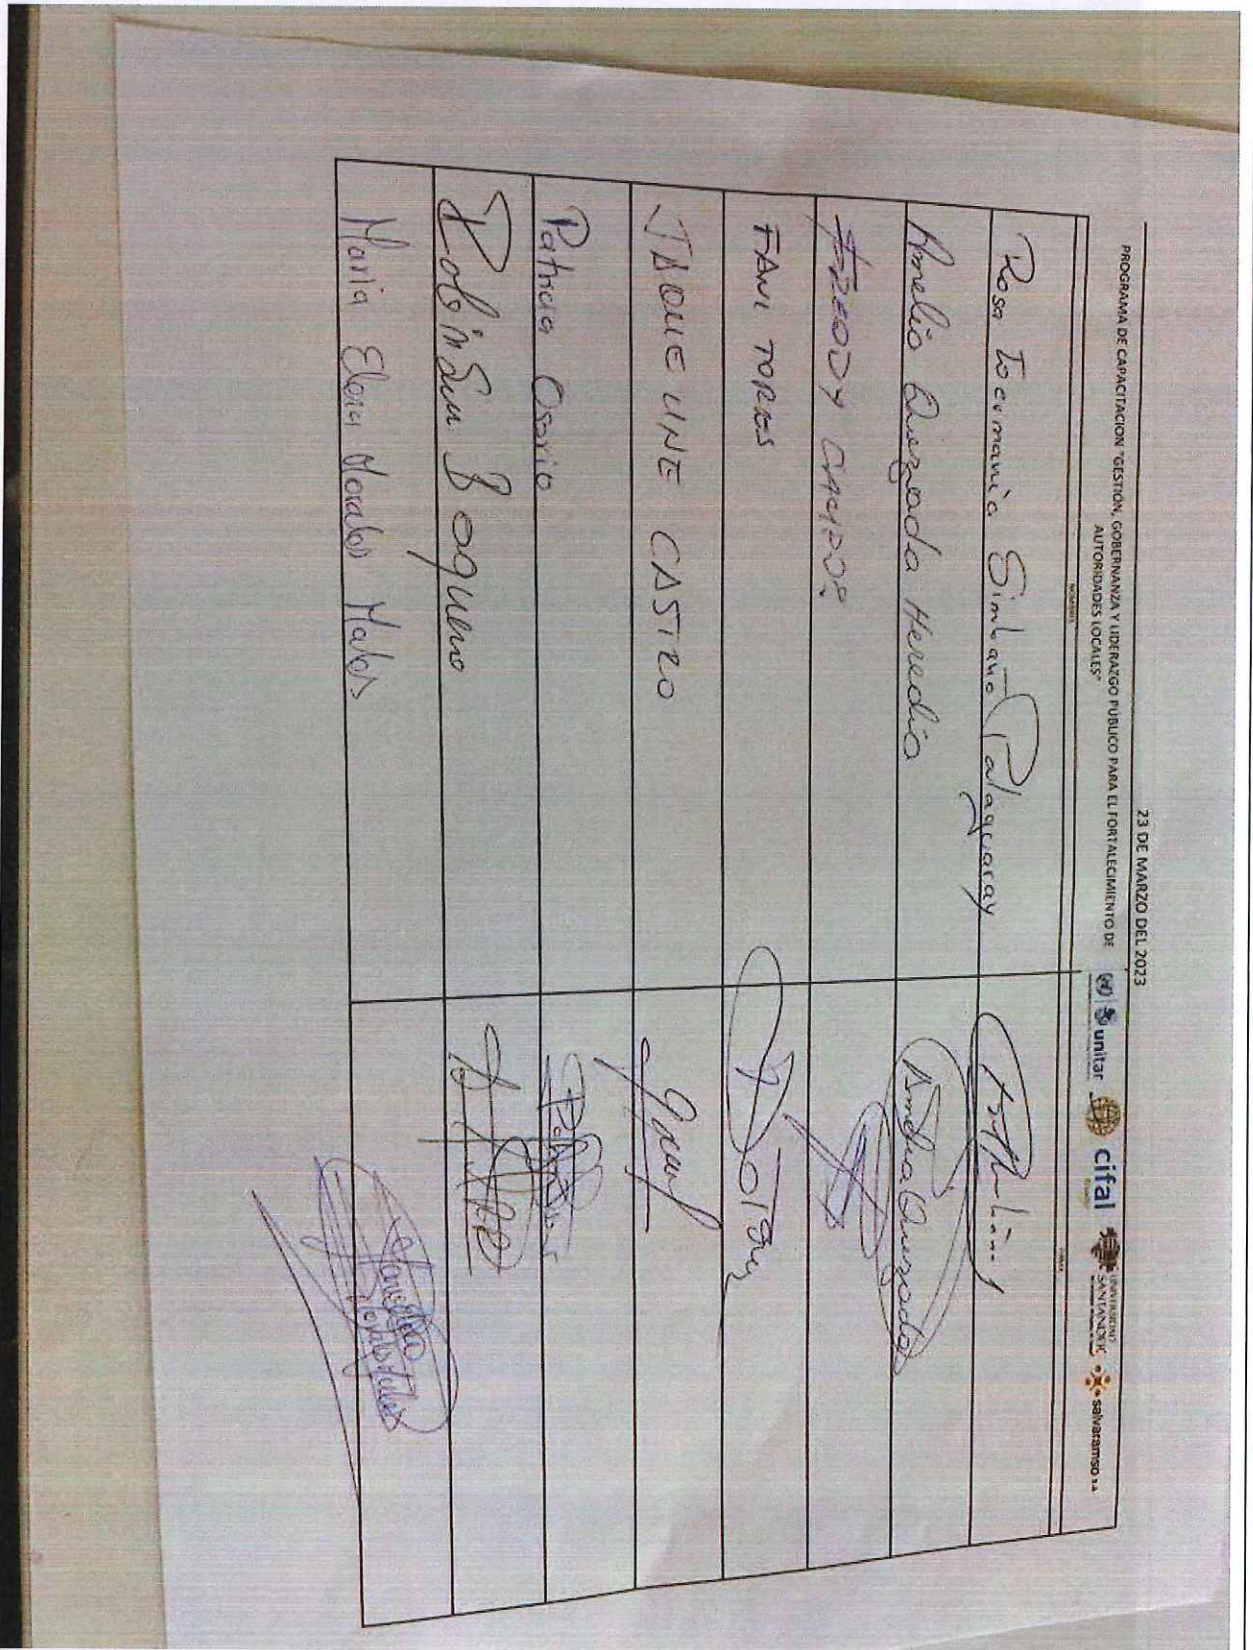 23 DE MARZO DEL 2023
PROGRAMA DE CAPACITACION "GESTIÓN, GOBERNANZA Y LIDERAZGO PÚBLICO PARA EL FORTALECIMIENTO DE
AUTORIDADES LOCALES"
unitar
cifal
UNIVERSIDAD
SANTANDER
salvaramso s.a
NOMBRES
FIRMA
Rosa Simbaña Palaguaray
Amelia Quezada Heredia
Amelia Quezada
FANI TORRES
JAQUELINE CASTRO
Patricia Osorio
Robinson Boquero
Maria Elena Morales Males